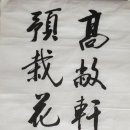 高敞軒
預栽花